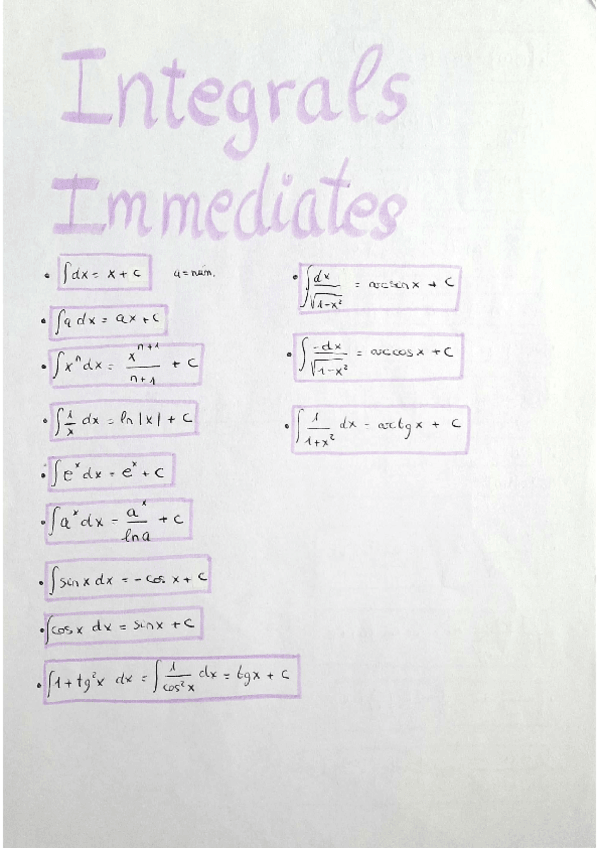 Integrals
Immediates
• ∫dx = x + C    a = núm.
• ∫a dx = ax + C
• ∫xⁿ dx = xⁿ⁺¹/(n+1) + C
• ∫1/x dx = ln |x| + C
• ∫eˣ dx = eˣ + C
• ∫aˣ dx = aˣ/ln a + C
• ∫sin x dx = - cos x + C
• ∫cos x dx = sin x + C
• ∫1 + tg²x dx = ∫1/cos²x dx = tg x + C
• ∫dx/√(1-x²) = arcsin x + C
• ∫-dx/√(1-x²) = arccos x + C
• ∫1/(1+x²) dx = arctg x + C